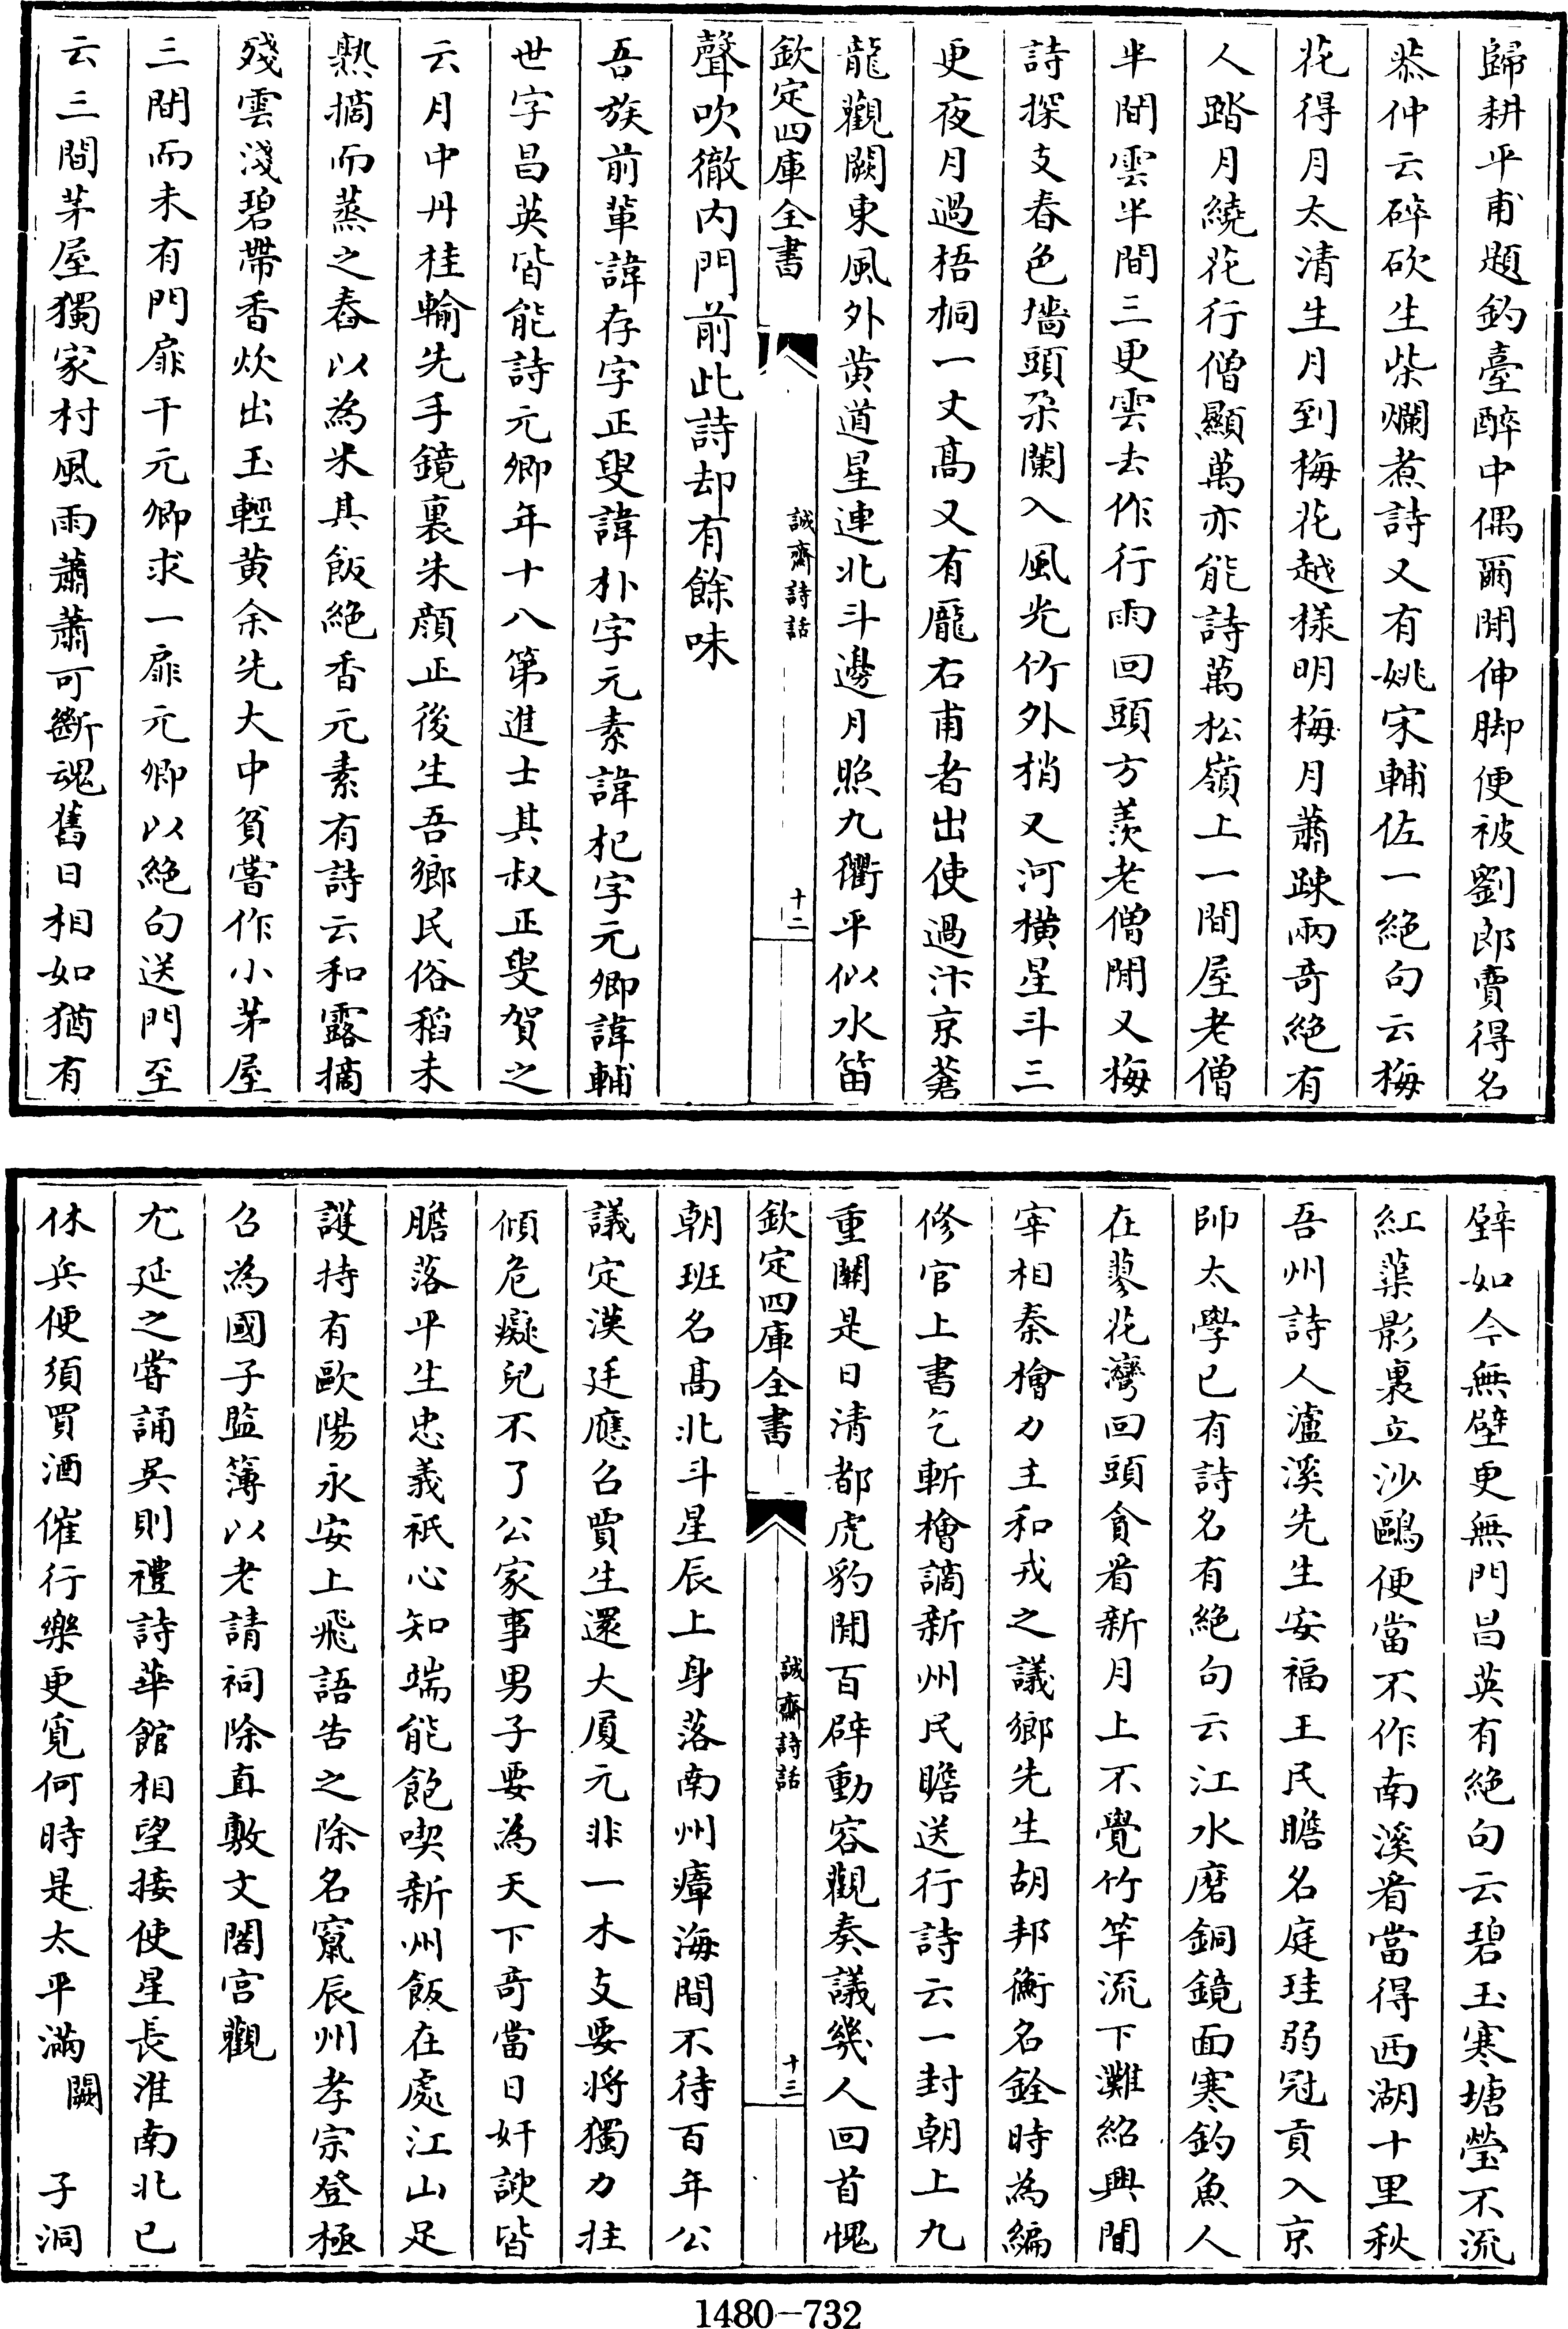 歸耕平甫題釣臺醉中偶爾閒伸脚便被劉郎賣得名
恭仲云碎砍生柴爛煮詩又有姚宋輔佐一絶句云梅
花得月太清生月到梅花越様明梅月蕭踈兩竒絶有
人踏月繞花行僧顯萬亦能詩萬松嶺上一間屋老僧
半間雲半間三更雲去作行雨回頭方羨老僧閒又梅
詩探支春色墻頭朵闌入風光竹外梢又河横星斗三
更夜月過梧桐一丈髙又有龎右甫者出使過汴京蒼
龍觀闕東風外黄道星連北斗邊月照九衢平似水笛
欽定四庫全書
誠齋詩話
十二
聲吹徹内門前此詩却有餘味
吾族前輩諱存字正叟諱朴字元素諱杞字元卿諱輔
世字昌英皆能詩元卿年十八第進士其叔正叟賀之
云月中丹桂輸先手鏡裏朱顔正後生吾鄉民俗稻未
熟摘而蒸之舂以為米其飯絶香元素有詩云和露摘
殘雲淺碧帶香炊出玉輕黄余先大中貧嘗作小茅屋
三間而未有門扉干元卿求一扉元卿以絶句送門至
云三間茅屋獨家村風雨蕭蕭可斷魂舊日相如猶有
壁如今無壁更無門昌英有絶句云碧玉寒塘瑩不流
紅蕖影裏立沙鷗便當不作南溪看當得西湖十里秋
吾州詩人瀘溪先生安福王民瞻名庭珪弱冠貢入京
師太學已有詩名有絶句云江水磨銅鏡面寒釣魚人
在蓼花灣回頭貪看新月上不覺竹竿流下灘紹興間
宰相秦檜力主和戎之議鄉先生胡邦衡名銓時為編
修官上書乞斬檜謫新州民瞻送行詩云一封朝上九
重闗是日清都虎豹閒百辟動容觀奏議幾人回首愧
欽定四庫全書
誠齋詩話
十三
朝班名髙北斗星辰上身落南州瘴海間不待百年公
議定漢廷應召賈生還大厦元非一木支要將獨力拄
傾危癡兒不了公家事男子要為天下竒當日奸諛皆
膽落平生忠義祇心知端能飽喫新州飯在處江山足
護持有歐陽永安上飛語告之除名竄辰州孝宗登極
召為國子監簿以老請祠除直敷文閣宫觀
尤延之嘗誦吳則禮詩華館相望接使星長淮南北已
休兵便須買酒催行樂更覓何時是太平滿闕 子洞
1480—732